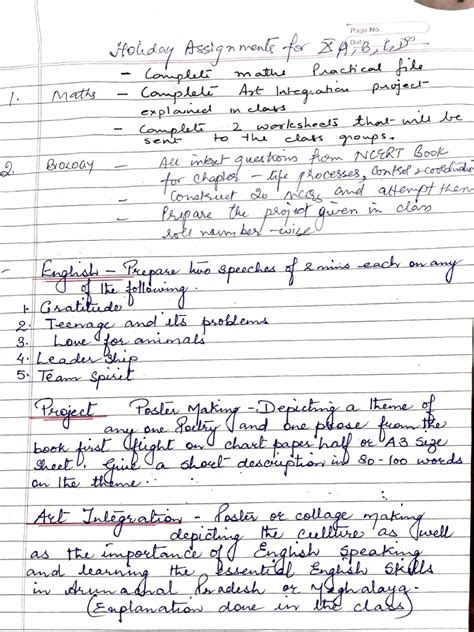 Page No.
Date
Holiday Assignments for X A, B, C, D
- Complete maths Practical file
1. Maths - Complete Art Integration project
explained in class
- Complete 2 worksheets that will be
sent to the class groups.
2. BIOLOGY - All intext questions from NCERT Book
for Chapter - life processes, Control & coordination
- Construct 20 MCQs and attempt them
- Prepare the project given in class
roll number-wise
- English - Prepare two speeches of 2 mins each on any
of the following.
1. Gratitude
2. Teenage and its problems
3. Love for animals
4. Leader Ship
5. Team Spirit
Project Poster Making - Depicting a theme of
any one Poetry and one prose from the
book first flight on chart paper half or A3 Size
Sheet. Give a short description in 80-100 words
on the theme.
Art Integration - Poster or collage making
depicting the culture as well
as the importance of English Speaking
and learning the essential English Skills
in Arunachal Pradesh or Meghalaya.
(Explanation done in the class)